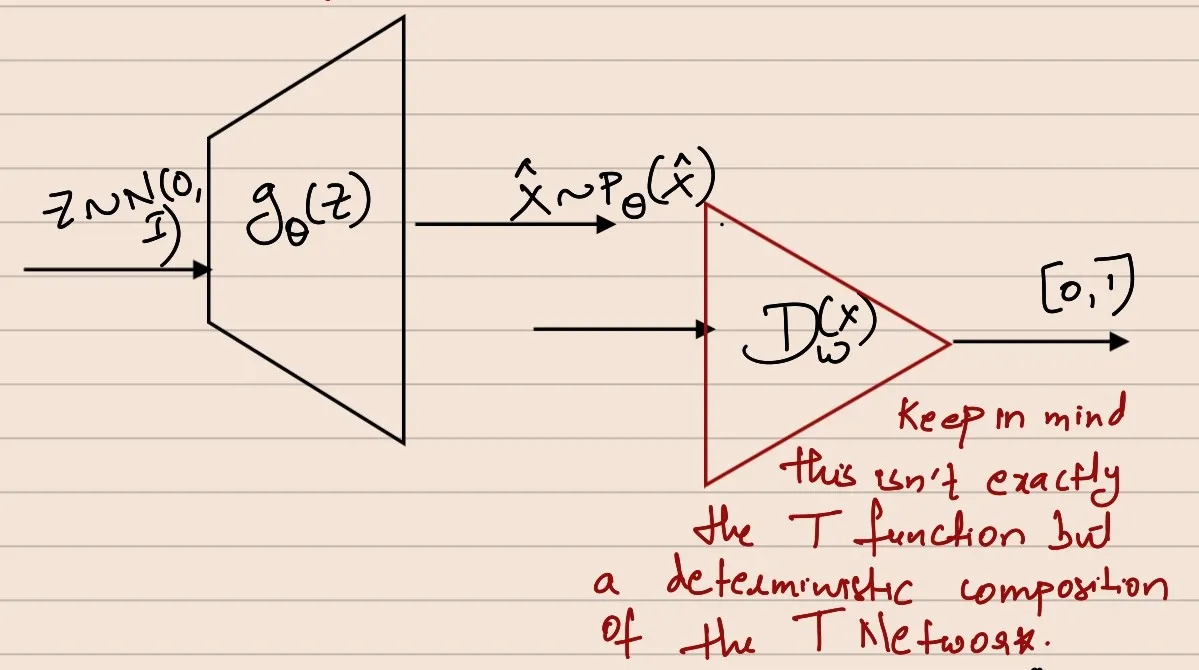 Z~N(0,
I)
g_θ(z)
x̂~P_θ(x̂)
D_w(x)
[0,1]
Keep in mind
this isn't exactly
the T function but
a deterministic composition
of the T Network.